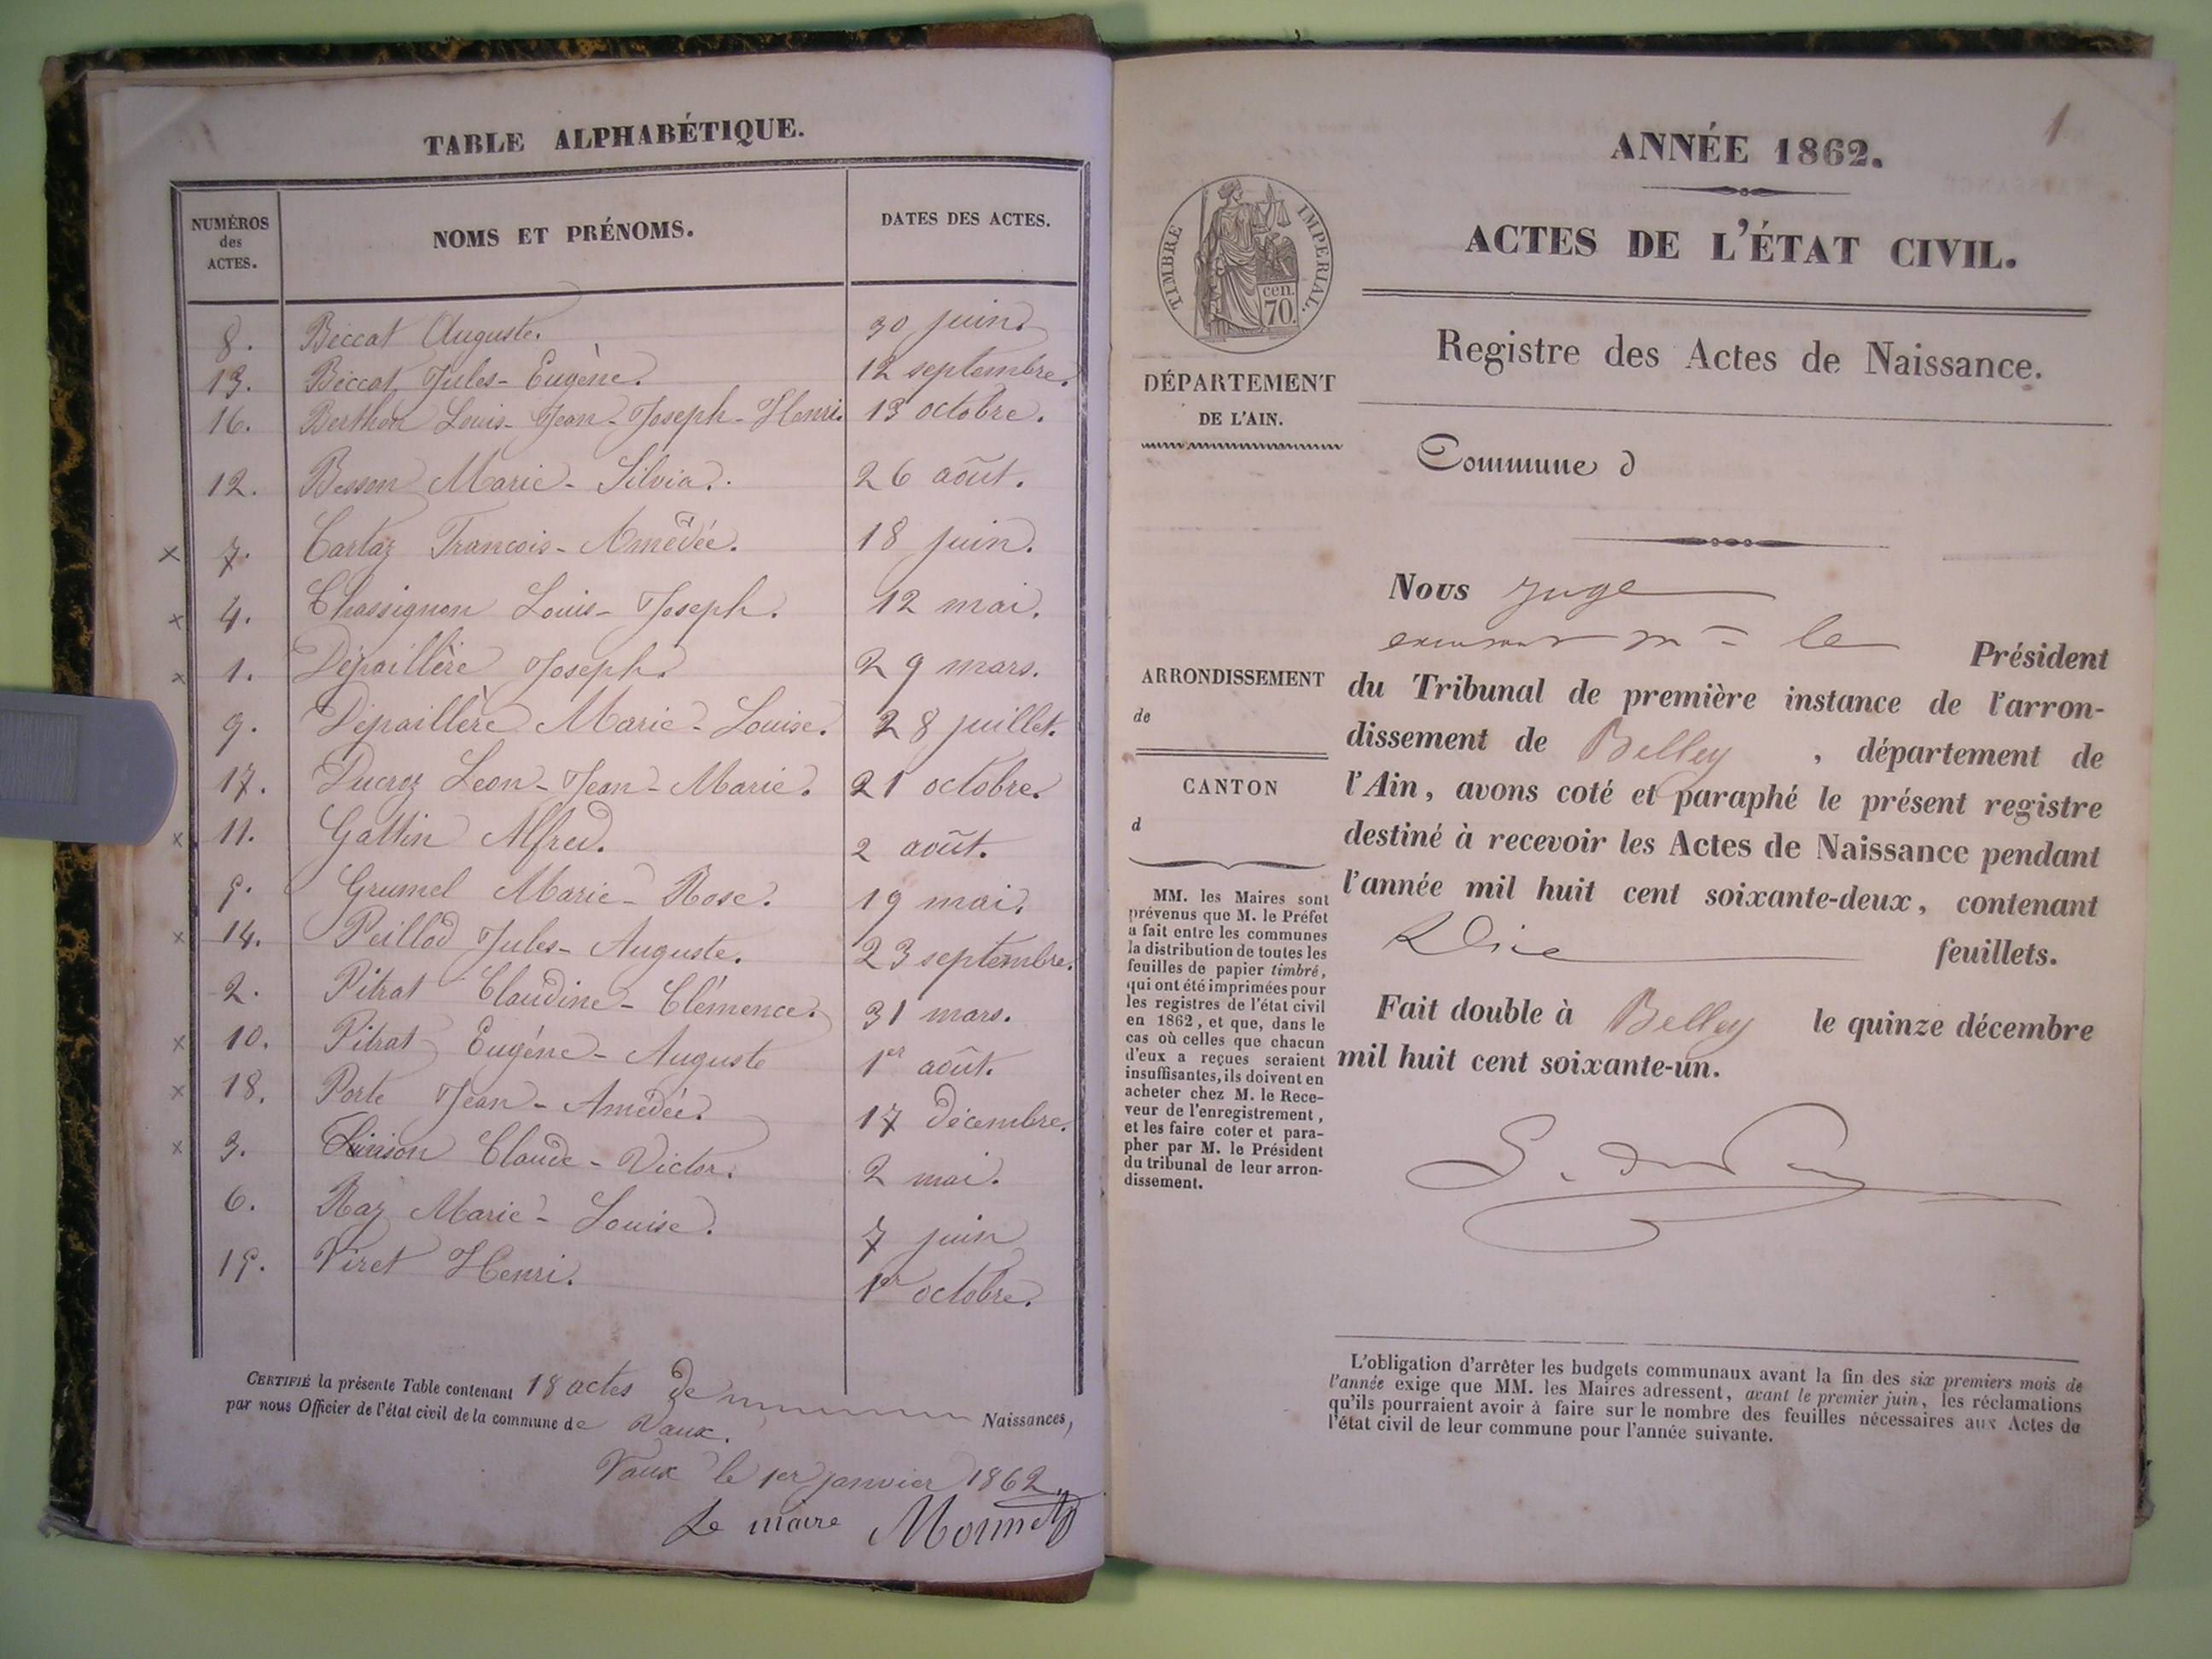 TABLE ALPHABÉTIQUE.
NUMÉROS
des
ACTES.
NOMS ET PRÉNOMS.
DATES DES ACTES.
8. Béccat Auguste. 30 juin.
13. Béccat Jules-Eugène. 12 septembre.
16. Berthon Louis-Jean-Joseph-Henri. 13 octobre.
12. Besson Marie-Silvia. 26 août.
x 7. Cartaz Francois-Amédée. 18 juin.
x 4. Chassignon Louis-Joseph. 12 mai.
x 1. Dépaillère Joseph. 29 mars.
9. Dépaillère Marie-Louise. 28 juillet.
17. Ducroz Leon-Jean-Marie. 21 octobre.
x 11. Gattin Alfred. 2 août.
5. Grumel Marie-Rose. 19 mai.
x 14. Peillod Jules-Auguste. 23 septembre.
2. Pitrat Claudine-Clémence. 31 mars.
x 10. Pitrat Eugéne-Auguste 1er août.
x 18. Porte Jean-Amédée. 17 décembre.
x 3. Claude-Victor. 2 mai.
6. Raz Marie-Louise. 7 juin
15. Viret Henri. 1er octobre.
CERTIFIÉ la présente Table contenant 18 actes de Naissances,
par nous Officier de l'état civil de la commune de Vaux.
Vaux le 1er janvier 1862.
Le maire Monnet
1
ANNÉE 1862.
ACTES DE L'ÉTAT CIVIL.
TIMBRE IMPERIAL.
cen.
70.
Registre des Actes de Naissance.
DÉPARTEMENT
DE L'AIN.
Commune d
ARRONDISSEMENT
de
CANTON
d
MM. les Maires sont
prévenus que M. le Préfet
a fait entre les communes
la distribution de toutes les
feuilles de papier timbré,
qui ont été imprimées pour
les registres de l'état civil
en 1862, et que, dans le
cas où celles que chacun
d'eux a reçues seraient
insuffisantes, ils doivent en
acheter chez M. le Rece-
veur de l'enregistrement,
et les faire coter et para-
pher par M. le Président
du tribunal de leur arron-
dissement.
Nous Juge
le Président
du Tribunal de première instance de l'arron-
dissement de Belley, département de
l'Ain, avons coté et paraphé le présent registre
destiné à recevoir les Actes de Naissance pendant
l'année mil huit cent soixante-deux, contenant
feuillets.
Fait double à Belley le quinze décembre
mil huit cent soixante-un.
L'obligation d'arrêter les budgets communaux avant la fin des six premiers mois de
l'année exige que MM. les Maires adressent, avant le premier juin, les réclamations
qu'ils pourraient avoir à faire sur le nombre des feuilles nécessaires aux Actes de
l'état civil de leur commune pour l'année suivante.